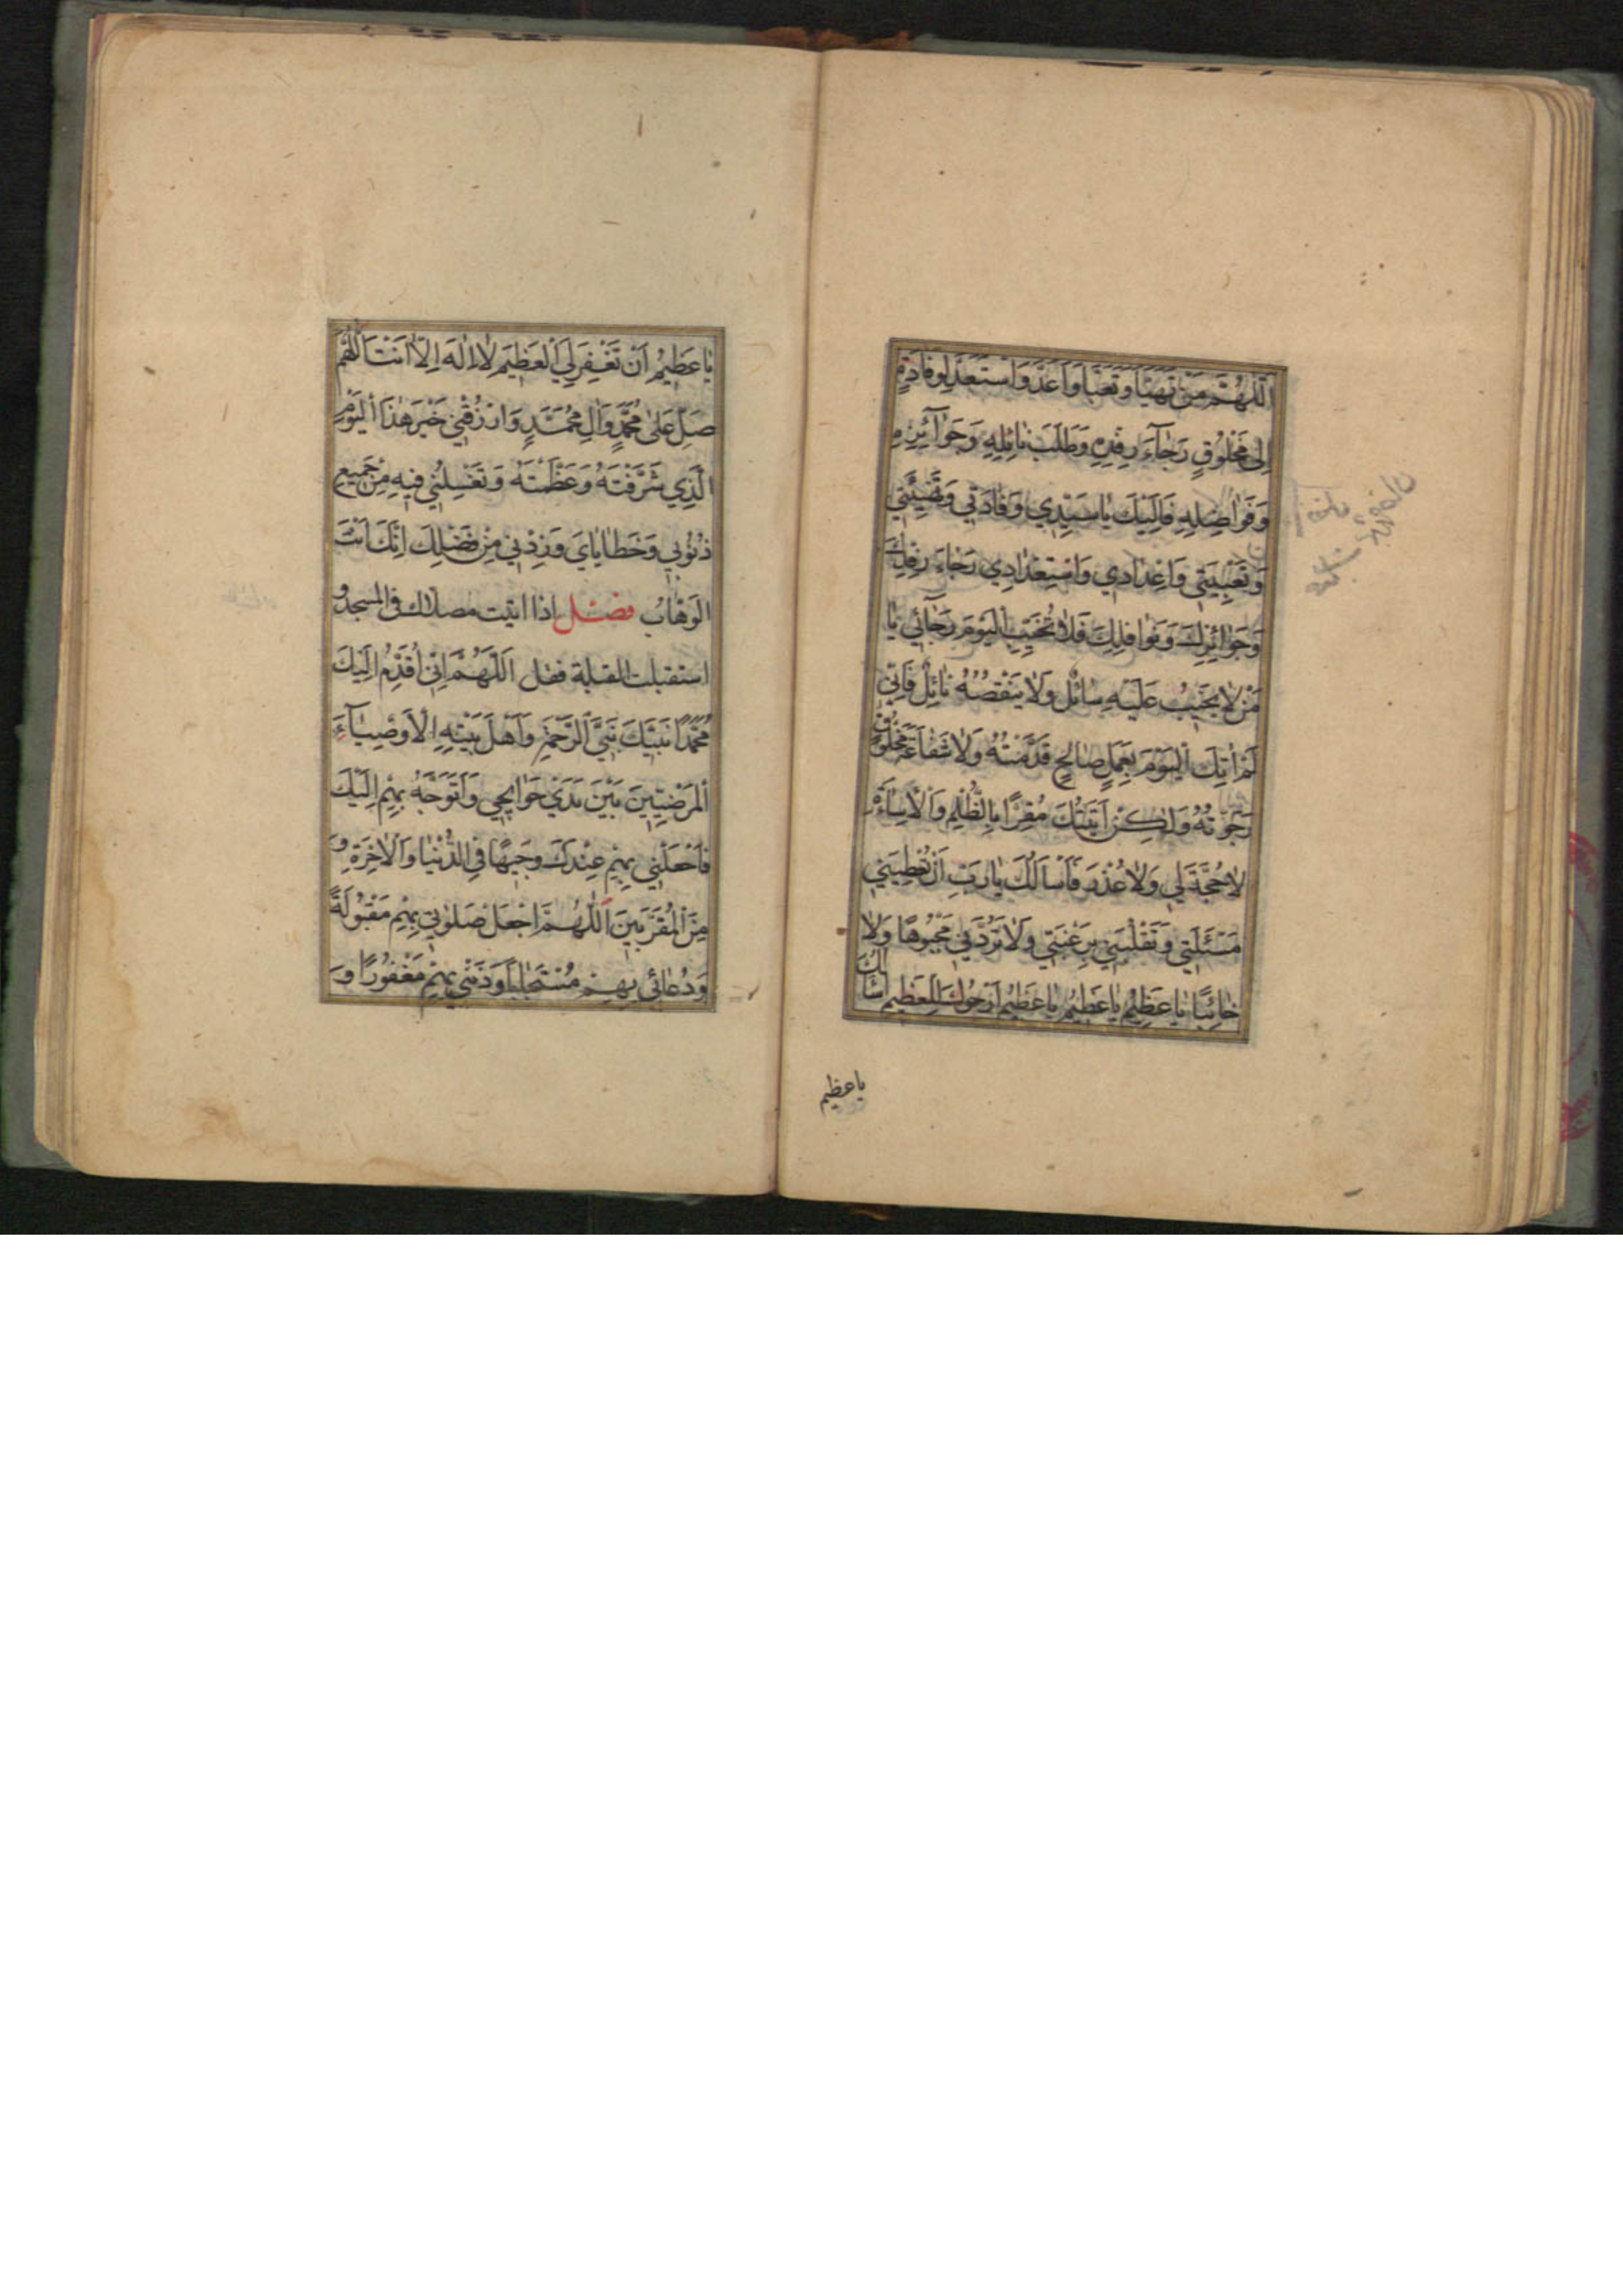 اَللّٰهُمَّ مَنْ تَهَيَّأَ وَتَعَبَّأَ وَاَعَدَّ وَاسْتَعَدَّ لِوِفَادَةٍ
اِلىٰ مَخْلُوقٍ رَجٰآءَ رِفْدِهِ وَطَلَبَ نٰائِلِهِ وَجَوٰآئِزِهِ
وَفَوٰاضِلِهِ فَاِلَيْكَ يٰا سَيِّدِي وِفٰادَتِي وَتَهْيِئَتِي
وَتَعْبِيَتِي وَاِعْدٰادِي وَاسْتِعْدٰادِي رَجٰاءَ رِفْدِكَ
وَجَوٰائِزِكَ وَنَوٰافِلِكَ فَلاٰ تُخَيِّبِ الْيَوْمَ رَجٰآئِي يٰا
مَنْ لاٰ يَخِيبُ عَلَيْهِ سٰائِلٌ وَلاٰ يَنْقُصُهُ نٰائِلٌ فَاِنِّي
لَمْ اٰتِكَ الْيَوْمَ بِعَمَلٍ صٰالِحٍ قَدَّمْتُهُ وَلاٰ شَفٰاعَةِ مَخْلُوقٍ
رَجَوْتُهُ وَلٰكِنْ اَتَيْتُكَ مُقِرًّا بِالظُّلْمِ وَالْاِسٰاءَةِ
لاٰ حُجَّةَ لِي وَلاٰ عُذْرَ فَاَسْاَلُكَ يٰا رَبِّ اَنْ تُعْطِيَنِي
مَسْئَلَتِي وَتَقْلِبَنِي بِرَغْبَتِي وَلاٰ تَرُدَّنِي مَجْبُوهًا وَلاٰ
خٰائِبًا يٰا عَظِيمُ يٰا عَظِيمُ يٰا عَظِيمُ اَرْجُوكَ لِلْعَظِيمِ اَسْاَلُكَ
يا عظيم
يٰا عَظِيمُ اَنْ تَغْفِرَ لِيَ الْعَظِيمَ لاٰ اِلٰهَ اِلاّٰ اَنْتَ اَللّٰهُمَّ
صَلِّ عَلىٰ مُحَمَّدٍ وَاٰلِ مُحَمَّدٍ وَارْزُقْنِي خَيْرَ هٰذَا الْيَوْمِ
الَّذِي شَرَّفْتَهُ وَعَظَّمْتَهُ وَتَغْسِلُنِي فِيهِ مِنْ جَمِيعِ
ذُنُوبِي وَخَطٰايٰايَ وَزِدْنِي مِنْ فَضْلِكَ اِنَّكَ اَنْتَ
الْوَهّٰابُ فصل اذا اتيت مصلاك فى المسجد و
استقبلت القبلة فقل اَللّٰهُمَّ اِنِّي اُقَدِّمُ اِلَيْكَ
مُحَمَّدًا نَبِيَّكَ نَبِيَّ الرَّحْمَةِ وَاَهْلَ بَيْتِهِ الْاَوْصِيٰآءَ
الْمَرْضِيِّينَ بَيْنَ يَدَيْ حَوٰايِجِي وَاَتَوَجَّهُ بِهِمْ اِلَيْكَ
فَاجْعَلْنِي بِهِمْ عِنْدَكَ وَجِيهًا فِي الدُّنْيٰا وَالْاٰخِرَةِ وَ
مِنَ الْمُقَرَّبِينَ اَللّٰهُمَّ اجْعَلْ صَلوٰتِي بِهِمْ مَقْبُولَةً
وَدُعٰائِي بِهِمْ مُسْتَجٰابًا وَذَنْبِي بِهِمْ مَغْفُورًا وَ